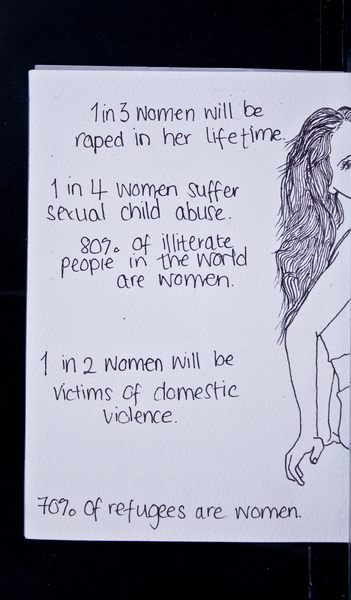 1 in 3 women will be
raped in her lifetime.
1 in 4 women suffer
sexual child abuse.
80% of illiterate
people in the world
are women.
1 in 2 women will be
victims of domestic
violence.
70% of refugees are women.